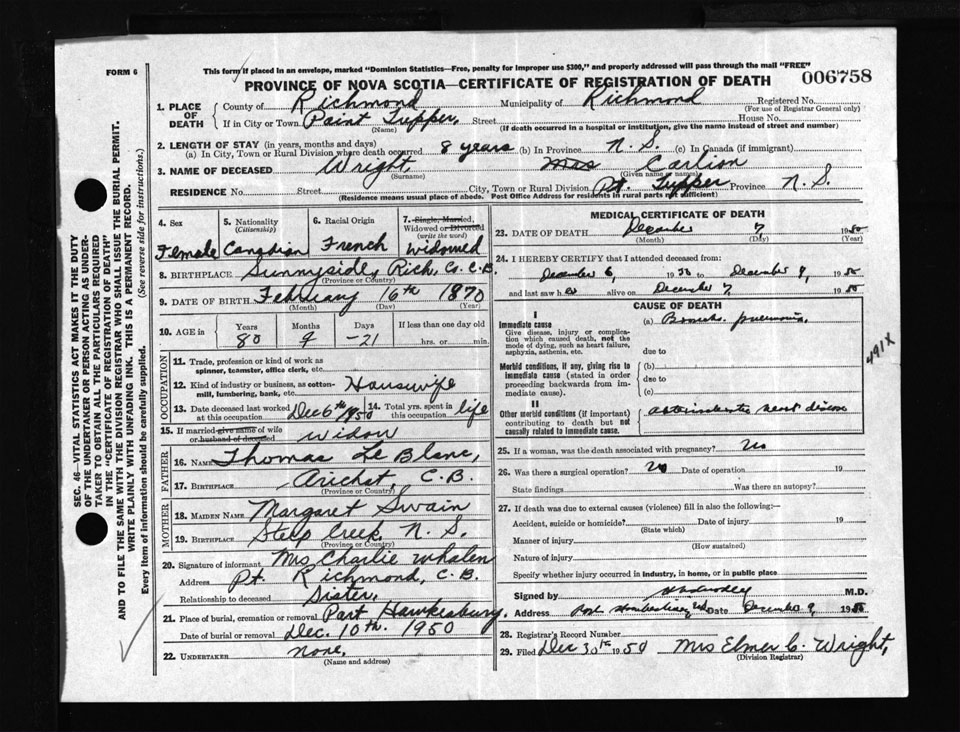 FORM 6
This form if placed in an envelope, marked "Dominion Statistics—Free, penalty for improper use $300," and properly addressed will pass through the mail "FREE"
PROVINCE OF NOVA SCOTIA—CERTIFICATE OF REGISTRATION OF DEATH
006758
1. PLACE OF DEATH County of Richmond Municipality of Richmond Registered No.
(For use of Registrar General only)
If in City or Town Point Tupper, Street House No.
(Name) (If death occurred in a hospital or institution, give the name instead of street and number)
2. LENGTH OF STAY (in years, months and days)
(a) In City, Town or Rural Division where death occurred 8 years (b) In Province N. S. (c) In Canada (if immigrant)
3. NAME OF DECEASED Wright, Mrs
(Surname) (Given name or names)
RESIDENCE No. Street City, Town or Rural Division Pt. Tupper Province N. S.
(Residence means usual place of abode. Post Office Address for residents in rural parts not sufficient)
4. Sex Female
5. Nationality (Citizenship) Canadian
6. Racial Origin French
7. Single, Married, Widowed or Divorced (write the word) widowed
8. BIRTHPLACE Sunnyside, Rich, Co. C. B.
(Province or Country)
9. DATE OF BIRTH February 16th 1870
(Month) (Day) (Year)
10. AGE in Years Months Days If less than one day old
80 9 -21 hrs. or min.
OCCUPATION
11. Trade, profession or kind of work as spinner, teamster, office clerk, etc.
12. Kind of industry or business, as cotton-mill, lumbering, bank, etc. Housewife
13. Date deceased last worked at this occupation Dec 6th 1950
14. Total yrs. spent in this occupation life
15. If married give name of wife or husband of deceased widow
FATHER
16. NAME Thomas Le Blanc,
17. BIRTHPLACE Arichat, C. B.
(Province or Country)
MOTHER
18. MAIDEN NAME Margaret Swain
19. BIRTHPLACE Steep Creek, N. S.
(Province or Country)
20. Signature of informant Mrs Charlie Whalen
Address Pt. Richmond, C. B.
Relationship to deceased Sister,
21. Place of burial, cremation or removal Port Hawkesbury,
Date of burial or removal Dec. 10th. 1950
22. UNDERTAKER none,
(Name and address)
MEDICAL CERTIFICATE OF DEATH
23. DATE OF DEATH December 7, 1950
(Month) (Day) (Year)
24. I HEREBY CERTIFY that I attended deceased from:
December 6, 1950 to December 9, 1950
and last saw her alive on December 7, 1950
CAUSE OF DEATH
I
Immediate cause
Give disease, injury or complication which caused death, not the mode of dying, such as heart failure, asphyxia, asthenia, etc.
(a) Broncho pneumonia.
due to
Morbid conditions, if any, giving rise to immediate cause (stated in order proceeding backwards from immediate cause).
(b)
due to
(c)
491X
II
Other morbid conditions (if important) contributing to death but not causally related to immediate cause.
heart disease
25. If a woman, was the death associated with pregnancy? No
26. Was there a surgical operation? No Date of operation 19
State findings Was there an autopsy?
27. If death was due to external causes (violence) fill in also the following:—
Accident, suicide or homicide? Date of injury 19
(State which)
Manner of injury
(How sustained)
Nature of injury
Specify whether injury occurred in industry, in home, or in public place
Signed by M.D.
Address Port Hawkesbury Date December 9, 1950
28. Registrar's Record Number
29. Filed Dec 30th 1950 Mrs Elmer C. Wright,
(Division Registrar)
SEC. 46—VITAL STATISTICS ACT MAKES IT THE DUTY
OF THE UNDERTAKER OR PERSON ACTING AS UNDER-
TAKER TO OBTAIN ALL THE PARTICULARS REQUIRED
IN THE "CERTIFICATE OF REGISTRATION OF DEATH"
AND TO FILE THE SAME WITH THE DIVISION REGISTRAR WHO SHALL ISSUE THE BURIAL PERMIT.
WRITE PLAINLY WITH UNFADING INK. THIS IS A PERMANENT RECORD.
Every item of information should be carefully supplied. (See reverse side for instructions.)